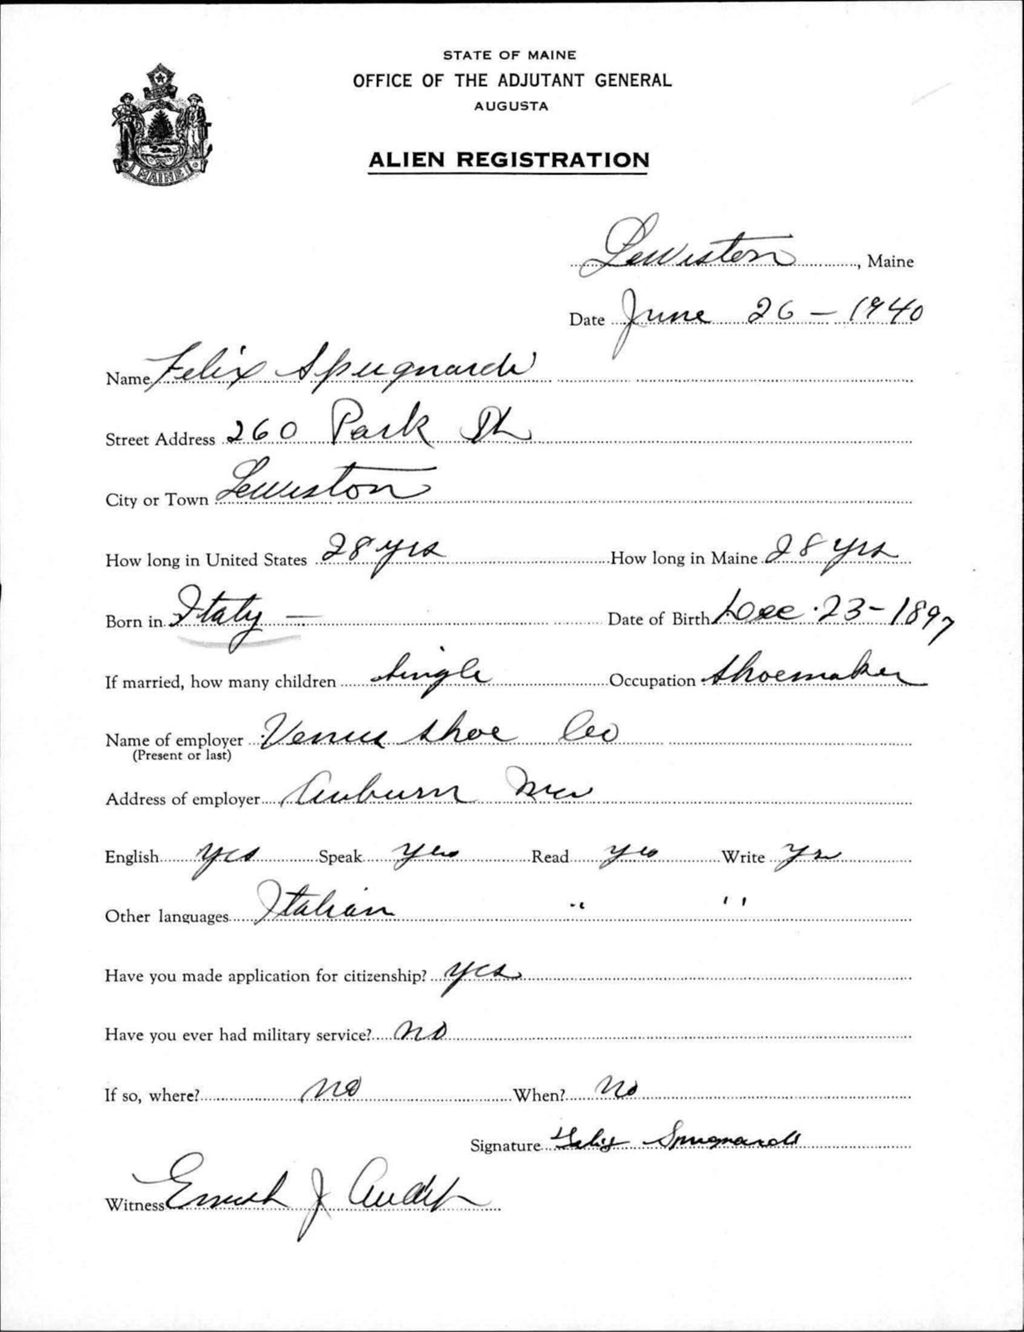 STATE OF MAINE
OFFICE OF THE ADJUTANT GENERAL
AUGUSTA
ALIEN REGISTRATION
MAINE
Lewiston, Maine
Date June 26 - 1940
Name Felix Spugnardi
Street Address 260 Park St
City or Town Lewiston
How long in United States 28 yrs How long in Maine 28 yrs
Born in Italy — Date of Birth Dec. 23 - 1897
If married, how many children Single Occupation Shoemaker
Name of employer Venus Shoe Co
(Present or last)
Address of employer Auburn Me
English yes Speak yes Read yes Write yes
Other languages Italian " "
Have you made application for citizenship? yes
Have you ever had military service? no
If so, where? no When? No
Signature Felix Spugnardi
Witness J